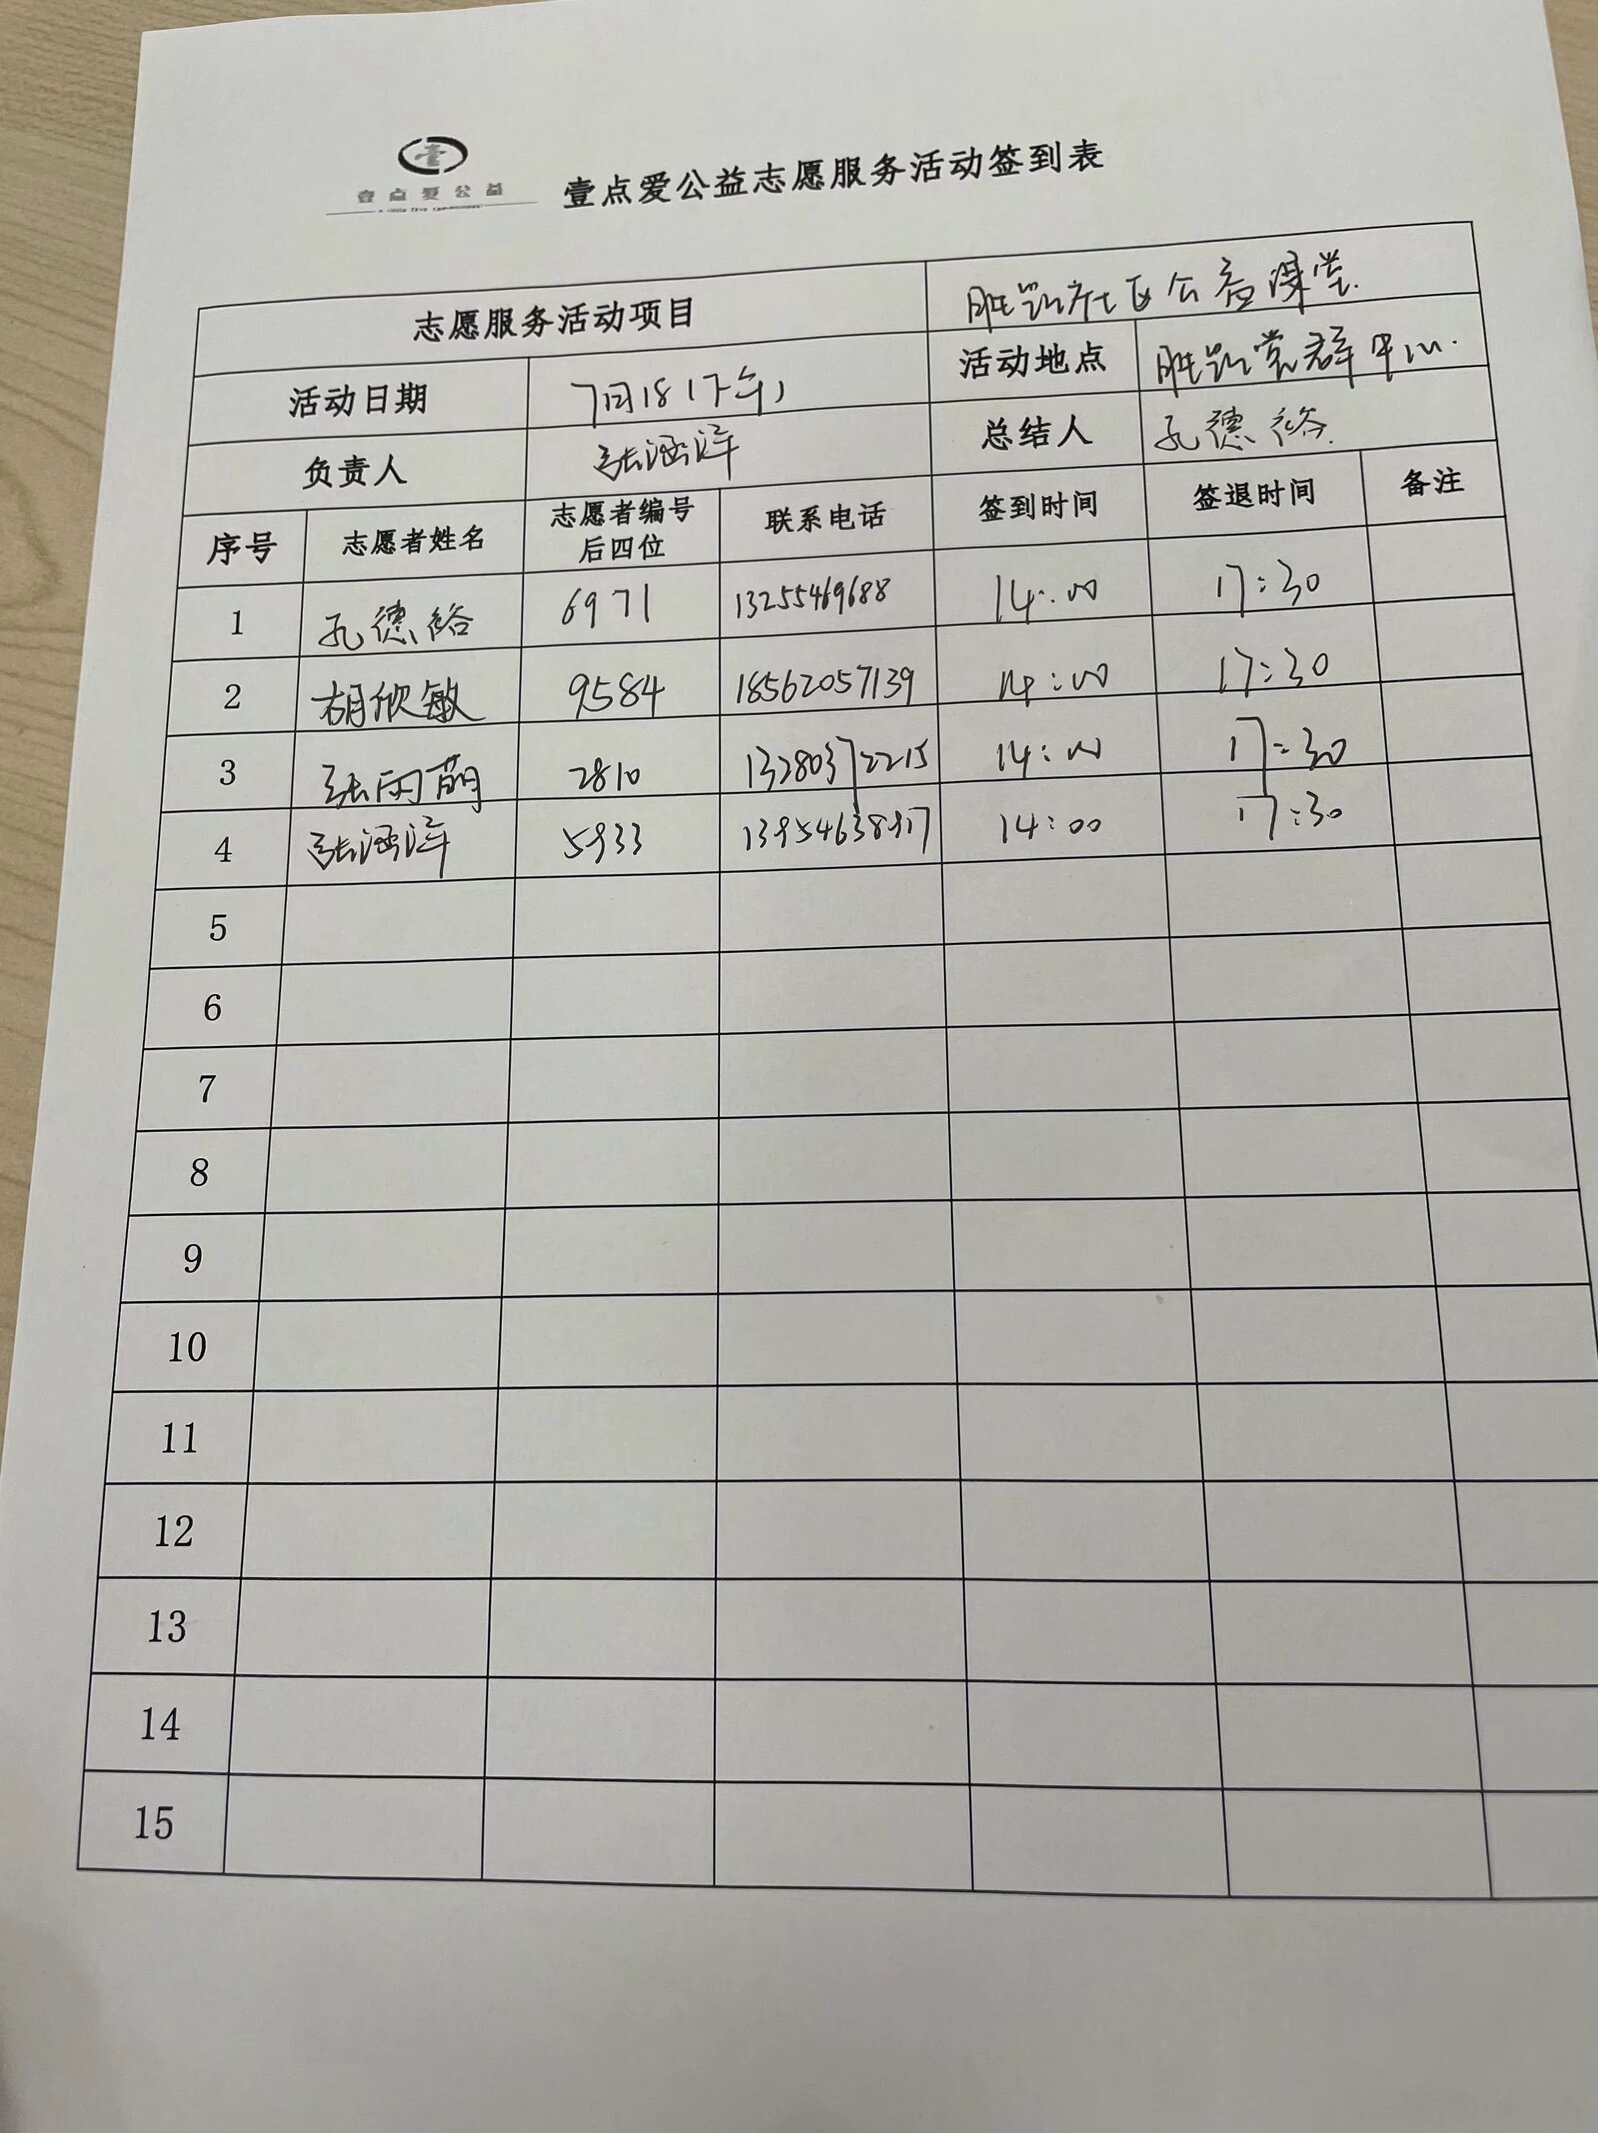 壹点爱公益
壹点爱公益志愿服务活动签到表
志愿服务活动项目 社区公益课堂
活动日期 7月18(下午) 活动地点 党群中心
负责人 张涵洋 总结人 孔德裕
序号 志愿者姓名 志愿者编号后四位 联系电话 签到时间 签退时间 备注
1 孔德裕 6971 13255469688 14:00 17:30
2 胡欣敏 9584 18562057139 14:00 17:30
3 张雨萌 2810 13280372215 14:00 17:30
4 张涵洋 5933 13954638917 14:00 17:30
5
6
7
8
9
10
11
12
13
14
15